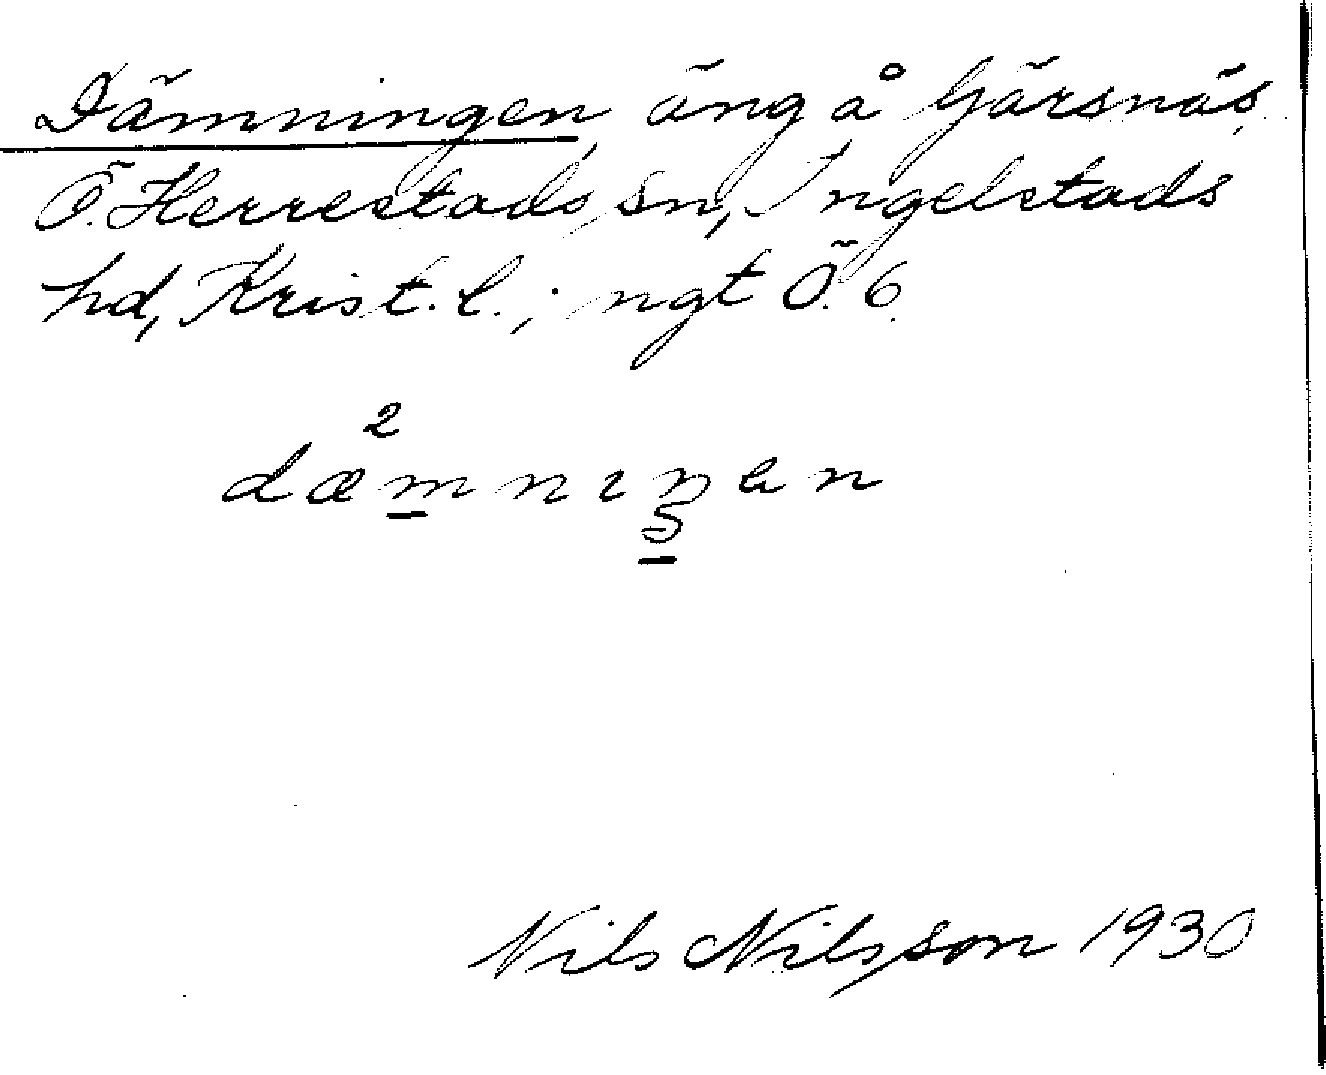 Dämningen, äng å Gärsnäs,
Ö. Herrestads sn, Ingelstads
hd, Krist. l.; ngt Ö. 6.
2
dæmnıŋen
Nils Nilsson 1930